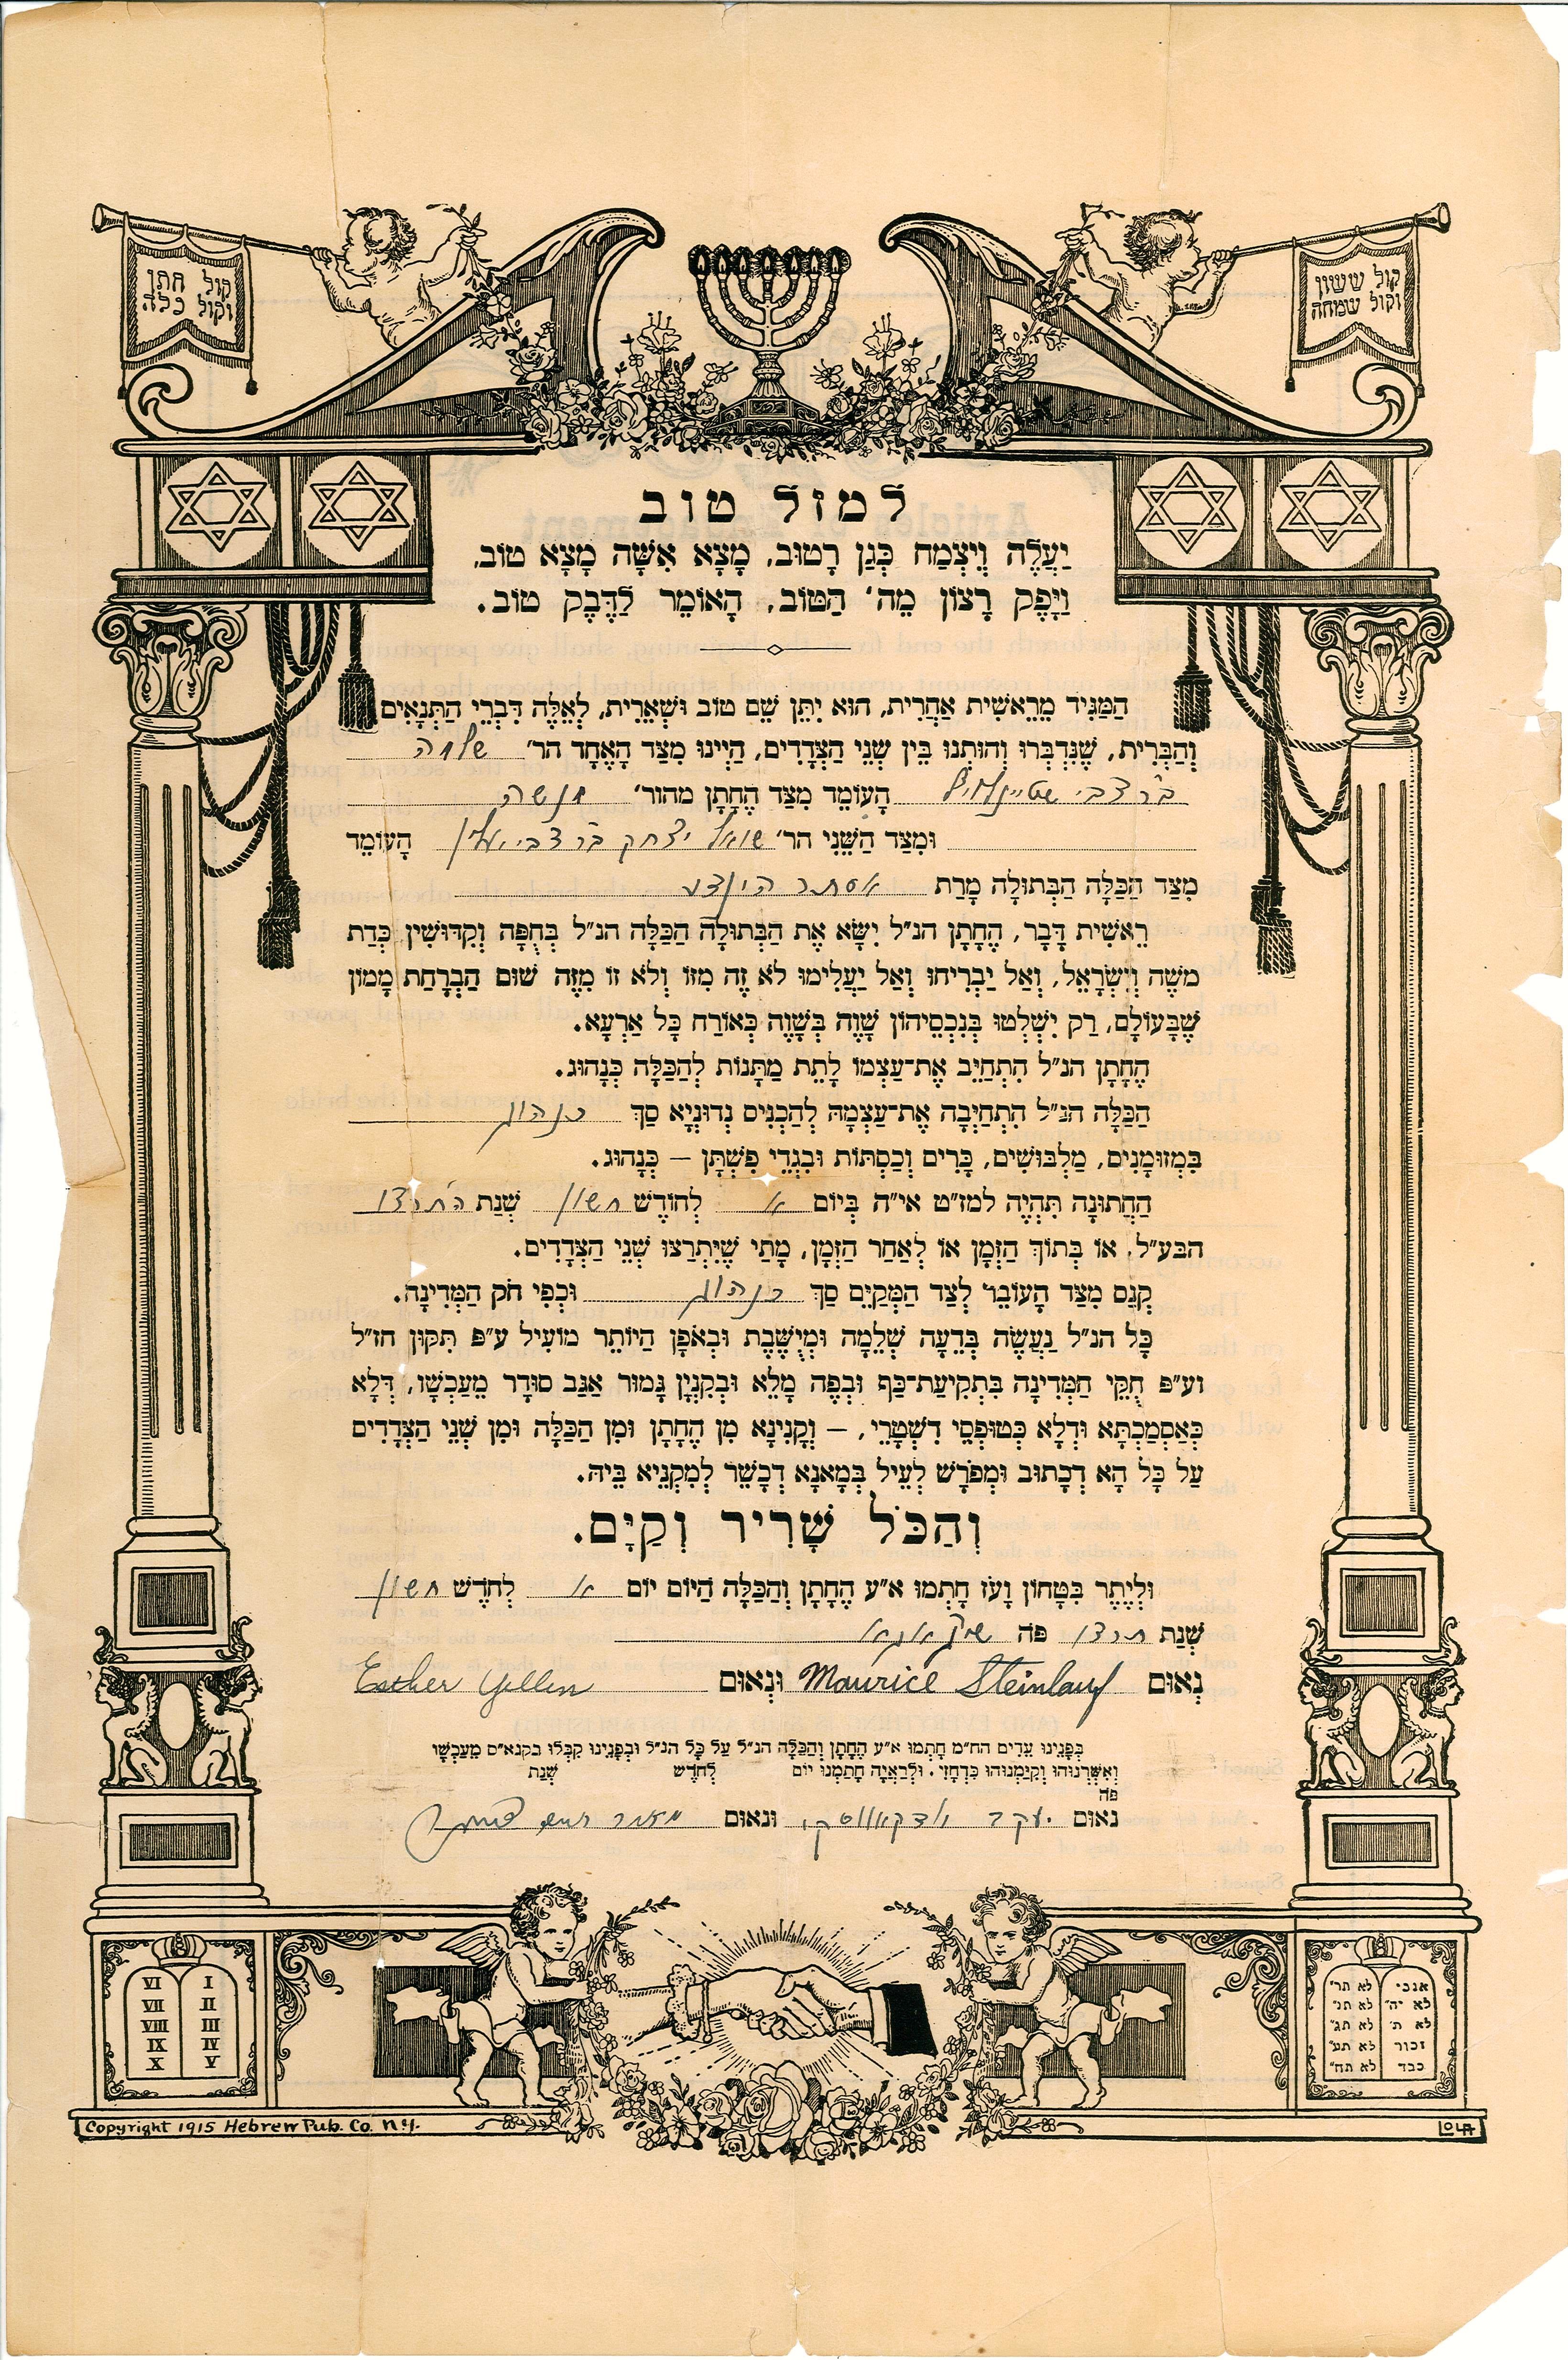 קול חתן
וקול כלה
קול ששון
וקול שמחה
למזל טוב
יַעֲלֶה וְיִצְמַח כְּגַן רָטוּב, מָצָא אִשָּׁה מָצָא טוֹב,
וַיָּפֶק רָצוֹן מֵה' הַטּוֹב, הָאוֹמֵר לַדֶּבֶק טוֹב.
הַמַּגִּיד מֵרֵאשִׁית אַחֲרִית, הוּא יִתֵּן שֵׁם טוֹב וּשְׁאֵרִית, לְאֵלֶּה דִּבְרֵי הַתְּנָאִים
וְהַבְּרִית, שֶׁנִּדְבְּרוּ וְהוּתְנוּ בֵּין שְׁנֵי הַצְּדָדִים, הַיְינוּ מִצַּד הָאֶחָד הר' שלמה
ב״ר צבי שטיינלויף הָעוֹמֵד מִצַּד הֶחָתָן מהור' מנשה
וּמִצַּד הַשֵּׁנִי הר' שואל יצחק ב״ר צבי יעלין הָעוֹמֵד
מִצַּד הַכַּלָּה הַבְּתוּלָה מָרַת אסתר הינדע
רֵאשִׁית דָּבָר, הֶחָתָן הנ״ל יִשָּׂא אֶת הַבְּתוּלָה הַכַּלָּה הנ״ל בְּחֻפָּה וְקִדּוּשִׁין כְּדַת
משֶׁה וְיִשְׂרָאֵל, וְאַל יַבְרִיחוּ וְאַל יַעֲלִימוּ לֹא זֶה מִזּוֹ וְלֹא זוֹ מִזֶּה שׁוּם הַבְרָחַת מָמוֹן
שֶׁבָּעוֹלָם, רַק יִשְׁלְטוּ בְּנִכְסֵיהוֹן שָׁוֶה בְּשָׁוֶה כְּאוֹרַח כָּל אַרְעָא.
הֶחָתָן הנ״ל הִתְחַיֵּב אֶת־עַצְמוֹ לָתֵת מַתָּנוֹת לְהַכַּלָּה כְּנָהוּג.
הַכַּלָּה הנ״ל הִתְחַיְּבָה אֶת־עַצְמָהּ לְהַכְנִים נְדוּנְיָא סַךְ כנהוג
בִּמְזוּמָנִים, מַלְבּוּשִׁים, כָּרִים וְכַסְתוֹת וּבִגְדֵי פִשְׁתָּן – כְּנָהוּג.
הַחֲתוּנָּה תִּהְיֶה למז״ט אי״ה בְּיוֹם א לְחוֹדֶשׁ חשון שְׁנַת התרצו
הבע״ל, אוֹ בְּתוֹךְ הַזְּמָן אוֹ לְאַחַר הַזְּמָן, מָתַי שֶׁיִּתְרַצּוּ שְׁנֵי הַצְּדָדִים.
קְנַס מִצַּד הָעוֹבֵר לְצַד הַמְּקַיֵּם סַךְ כנהוג וּכְפִי חֹק הַמְּדִינָה.
כָּל הנ״ל נַעֲשֶׂה בְּדֵעָה שְׁלֵמָה וּמְיֻשֶּׁבֶת וּבְאֹפֶן הַיּוֹתֵר מוֹעִיל ע״פ תִּקּוּן חז״ל
וע״פ חֻקֵּי הַמְּדִינָה בִּתְקִיעַת־כַּף וּבְפֶה מָלֵא וּבְקִנְיָן גָּמוּר אַגַּב סוּדָר מֵעַכְשָׁו, דְּלָא
כְּאַסְמַכְתָּא וּדְלָא כְּטוּפְסֵי דִשְׁטָרֵי, – וְקָנִינָא מִן הֶחָתָן וּמִן הַכַּלָּה וּמִן שְׁנֵי הַצְּדָדִים
עַל כָּל הָא דְכָתוּב וּמְפֹרָשׁ לְעֵיל בְּמָאנָא דְכָשֵׁר לְמִקְנְיָא בֵּיהּ.
וְהַכֹּל שָׁרִיר וְקַיָּם.
וּלְיֶתֶר בִּטָּחוֹן וָעֹז חָתְמוּ א״ע הֶחָתָן וְהַכַּלָּה הַיּוֹם יוֹם א לְחֹדֶשׁ חשון
שְׁנַת תרצו פֹּה שיקאגא
נְאוּם Maurice Steinlauf וּנְאוּם Esther Yellen
בְּפָנֵינוּ עֵדִים הח״מ חָתְמוּ א״ע הֶחָתָן וְהַכַּלָּה הנ״ל עַל כָּל הנ״ל וּבְפָנֵינוּ קִבְּלוּ בקנא״ס מֵעַכְשָׁו
וְאִשַּׁרְנוּהוּ וְקִיַּמְנוּהוּ כִּדְחָזֵי. וְלִרְאָיָה חָתַמְנוּ יוֹם לְחֹדֶשׁ שְׁנַת
פֹּה
נאוּם יעקב ונאוּם מאיר
VI I
VII II
VIII III
IX IV
X V
אנכי לא תר'
לא יה' לא תנ'
לא ת' לא תג'
זכור לא תע'
כבד לא תח'
Copyright 1915 Hebrew Pub. Co. N.Y.
LOLA